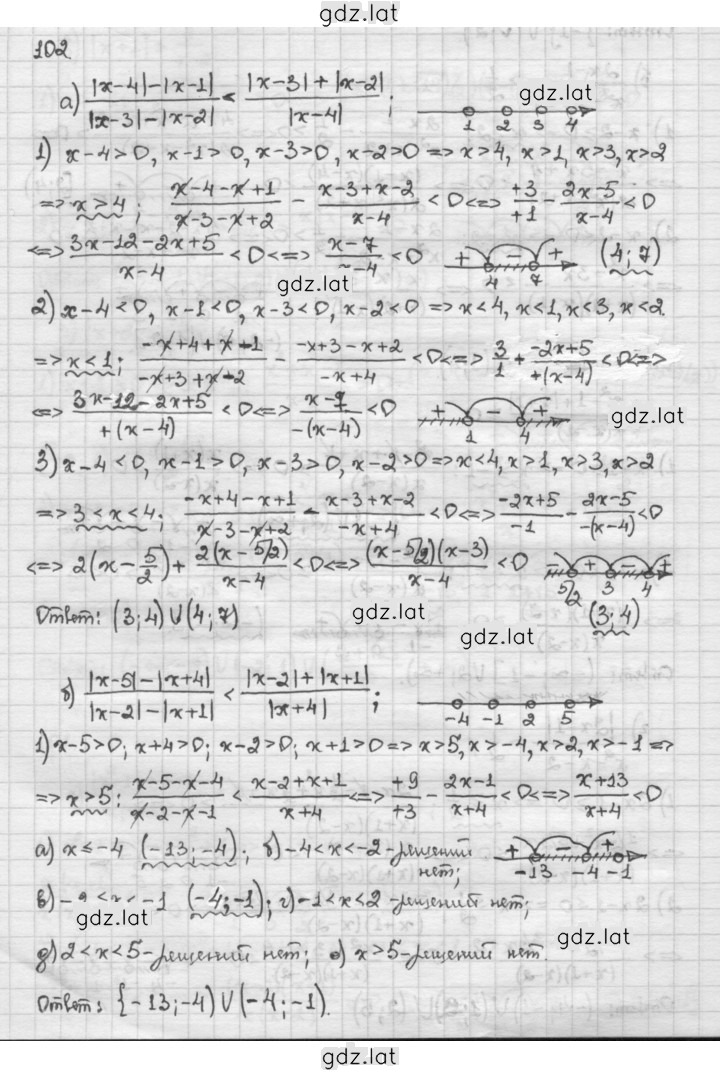 gdz.lat
102
а) |x-4|-|x-1| / |x-3|-|x-2| < |x-3|+|x-2| / |x-4| ; gdz.lat
1 2 3 4
1) x-4>0, x-1>0, x-3>0, x-2>0 => x>4, x>1, x>3, x>2
=> x>4; x-4-x+1 / x-3-x+2 - x-3+x-2 / x-4 < 0 <=> +3/+1 - 2x-5 / x-4 < 0
<=> 3x-12-2x+5 / x-4 < 0 <=> x-7 / -4 < 0 + - + 4 7 (4; 7)
gdz.lat
2) x-4<0, x-1<0, x-3<0, x-2<0 => x<4, x<1, x<3, x<2.
=> x<1; -x+4+x-1 / -x+3+x-2 - -x+3-x+2 / -x+4 < 0 <=> 3/1 + -2x+5 / +(x-4) < 0 <=>
<=> 3x-12-2x+5 / +(x-4) < 0 <=> x-7 / -(x-4) < 0 + - + 1 4 gdz.lat
3) x-4<0, x-1>0, x-3>0, x-2>0 => x<4, x>1, x>3, x>2
=> 3<x<4; -x+4-x+1 / x-3-x+2 - x-3+x-2 / -x+4 < 0 <=> -2x+5 / -1 - 2x-5 / -(x-4) < 0
<=> 2(x-5/2) + 2(x-5/2) / x-4 < 0 <=> (x-5/2)(x-3) / x-4 < 0 - + - + 5/2 3 4
Ответ: (3; 4) ∪ (4; 7) gdz.lat (3; 4)
gdz.lat
б) |x-5|-|x+4| / |x-2|-|x+1| < |x-2|+|x+1| / |x+4| ; -4 -1 2 5
1) x-5>0; x+4>0; x-2>0; x+1>0 => x>5, x>-4, x>2, x>-1 =>
=> x>5; x-5-x-4 / x-2-x-1 < x-2+x+1 / x+4 <=> +9/+3 - 2x-1 / x+4 < 0 <=> x+13 / x+4 < 0
а) x≤-4 (-13; -4); б) -4<x<-2 - решений нет; + - + -13 -4 -1
в) < x < -1 (-4; -1); г) -1<x<2 - решений нет;
gdz.lat
д) 2<x<5 - решений нет; е) x>5 - решений нет. gdz.lat
Ответ: {-13; -4) ∪ (-4; -1).
gdz.lat